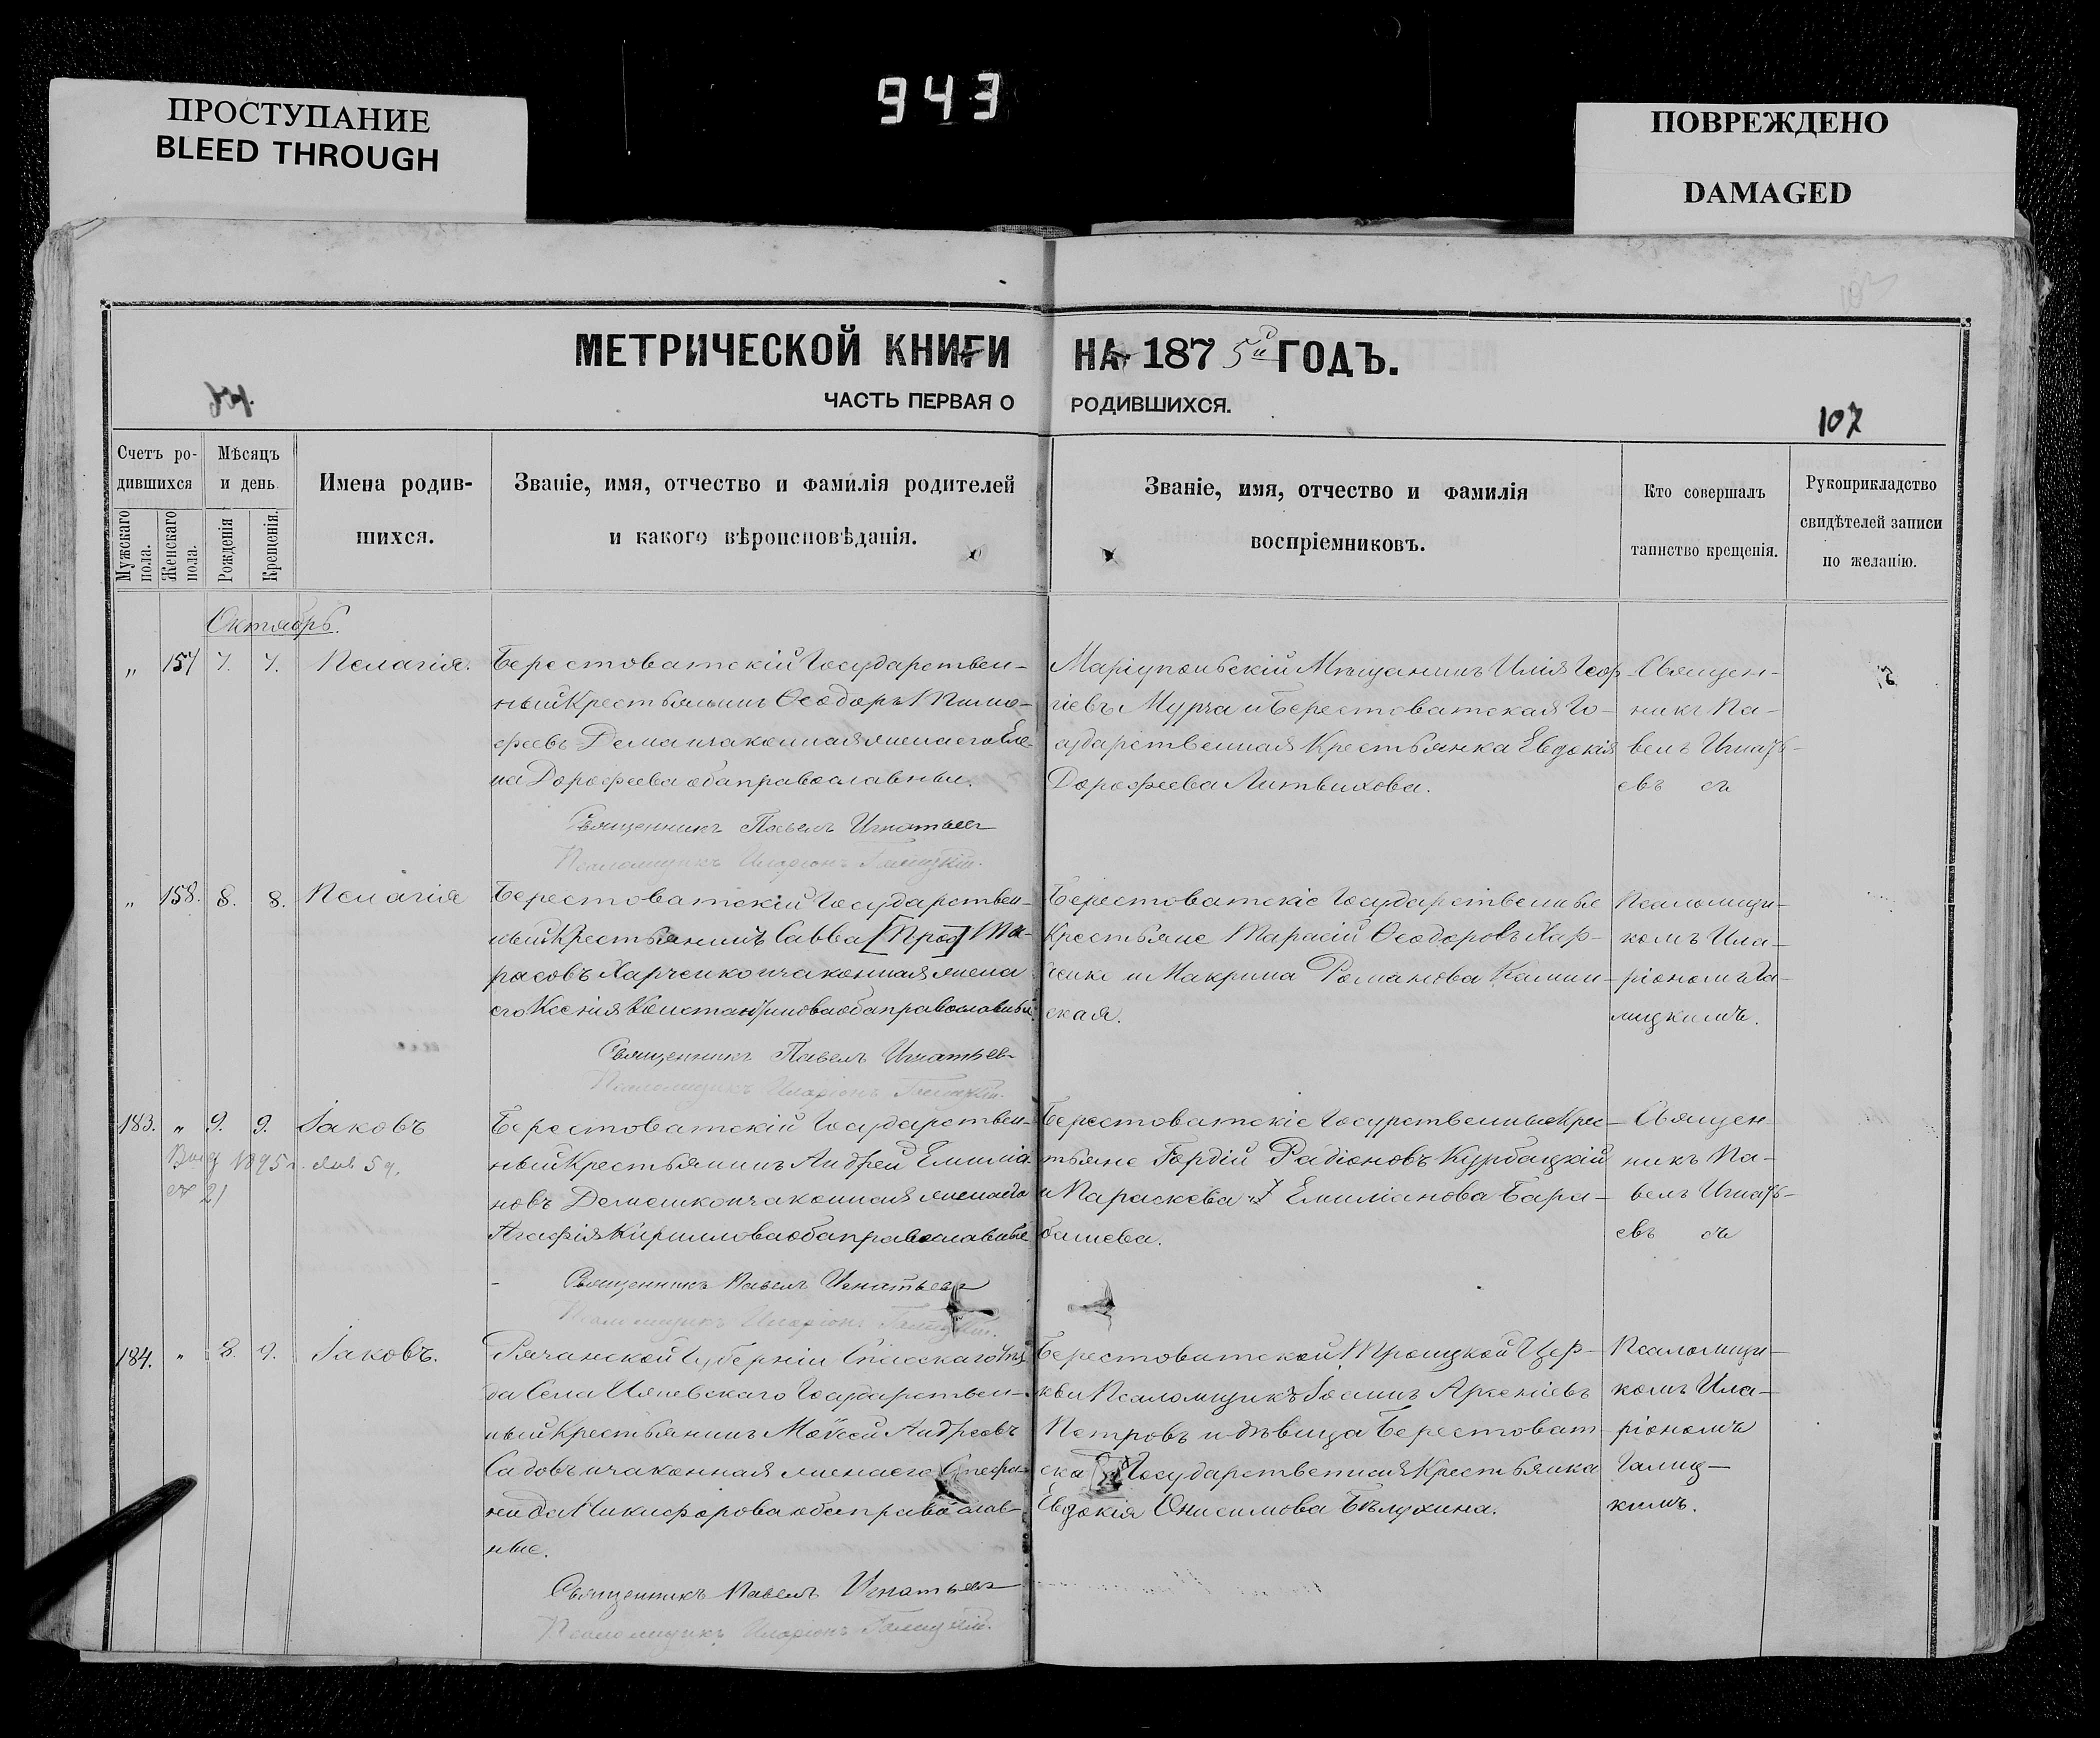 943
ПРОСТУПАНИЕ
BLEED THROUGH
ПОВРЕЖДЕНО
DAMAGED
МЕТРИЧЕСКОЙ КНИГИ НА 1875й ГОДЪ.
ЧАСТЬ ПЕРВАЯ О РОДИВШИХСЯ.
107
Счетъ ро-
дившихся
Мужскаго пола.
Женскаго пола.
Мѣсяцъ
и день
Рожденія
Крещенія.
Имена родив-
шихся.
Званіе, имя, отчество и фамилія родителей
и какого вѣроисповѣданія.
Званіе, имя, отчество и фамилія
воспріемниковъ.
Кто совершалъ
таинство крещенія.
Рукоприкладство
свидѣтелей записи
по желанію.
Октябрь.
„ 157 7. 7. Пелагія.
Берестоватскій Государствен-
ный Крестьянинъ Ѳеодоръ Тимо-
феевъ Дема и законная жена его Еле-
на Дорофеева оба православныи.
Священникъ Павелъ Игнатьев
Псаломщикъ Иларіонъ Галицкій.
Маріупольскій Мѣщанинъ Илія Геор
гіевъ Мурза и Берестоватская Го-
сударственная Крестьянка Евдокія
Дорофеева Литвинова.
Священ-
никъ Па-
велъ Игнать-
евъ съ
„ 158. 8. 8. Пелагія
Берестоватскій Государствен-
ный Крестьянинъ Савва [Проз] Та-
расовъ Харченко и законная жена
его Ксенія Константинова оба православныи.
Священникъ Павелъ Игнатьев
Псаломщикъ Иларіонъ Галицкій.
Берестоватскіе Государственные
Крестьяне Тарасій Ѳеодоровъ Хар-
ченко и Макрина Романова Камин-
ская.
Псаломщи-
комъ Ила-
ріономъ Га-
лицкимъ.
183. „ 9. 9. Іаковъ
1895
Берестоватскій Государствен-
ный Крестьянинъ Андрей Емилiа-
новъ Демешко и законная жена его
Агафія Кириллова оба православные
Священникъ Павелъ Игнатьевъ
Псаломщикъ Иларіонъ Галицкій.
Берестоватскіе Госурственные Крес-
тьяне Гордій Радіоновъ Курбацкій
и Параскева Емиліанова Бара-
башева.
Священ
никъ Па-
велъ Игнать-
евъ съ
184. „ 8. 9. Іаковъ.
Рязанской Губерніи Спасскаго Уѣз
да Села Ижевскаго Государствен-
ный Крестьянинъ Моѵсей Андреевъ
Садовъ и законная жена его Стефа-
нида Никифорова оба православ-
ные.
Священникъ Павелъ Игнатьевъ
Псаломщикъ Иларіонъ Галицкій.
Берестоватской Троицкой Цер-
кви Псаломщикъ Іоаннъ Арсеніевъ
Петровъ и дѣвица Берестоват
ска Государственная Крестьянка
Евдокія Онисимова Бѣлухина.
Псаломщи-
комъ Ила-
ріономъ
Галиц-
кимъ.